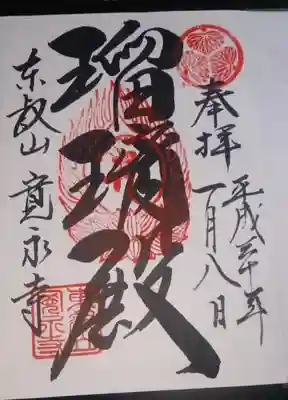 奉拝
平成三十年
一月八日
瑠璃殿
东叡山 寛永寺